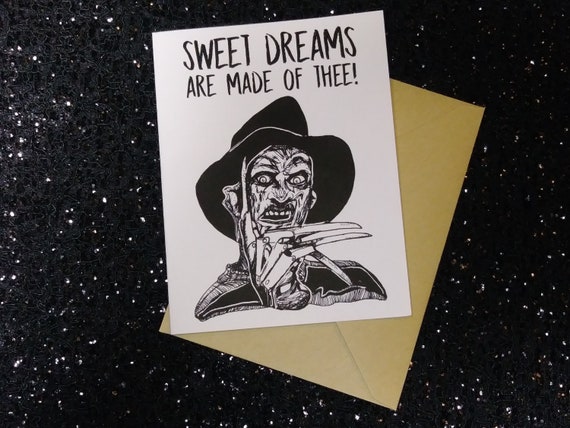 SWEET DREAMS
ARE MADE OF THEE!